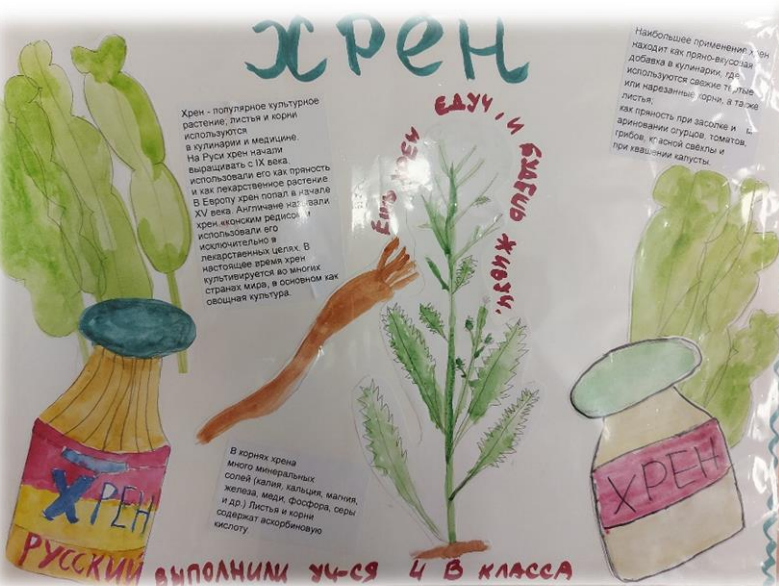 ХРЕН
Хрен - популярное культурное
растение, листья и корни
используются
в кулинарии и медицине.
На Руси хрен начали
выращивать с IX века.
использовали его как пряность
и как лекарственное растение
В Европу хрен попал в начале
XV века. Англичане называли
хрен «конским редисом и
использовали его
исключительно в
лекарственных целях. В
настоящее время хрен
культивируется во многих
странах мира, в основном как
овощная культура.
Ешь хрен едуч, и будешь живуч.
Наибольшее применение хрен
находит как пряно-вкусовая
добавка в кулинарии, где
используются свежие тёртые
или нарезанные корни, а также
листья;
как пряность при засолке и
мариновании огурцов, томатов,
грибов, красной свёклы и
при квашении капусты.
В корнях хрена
много минеральных
солей (калия, кальция, магния,
железа, меди, фосфора, серы
и др.) Листья и корни
содержат аскорбиновую
кислоту.
ХРЕН
РУССКИЙ
ХРЕН
ВЫПОЛНИЛИ УЧ-СЯ 4 В КЛАССА